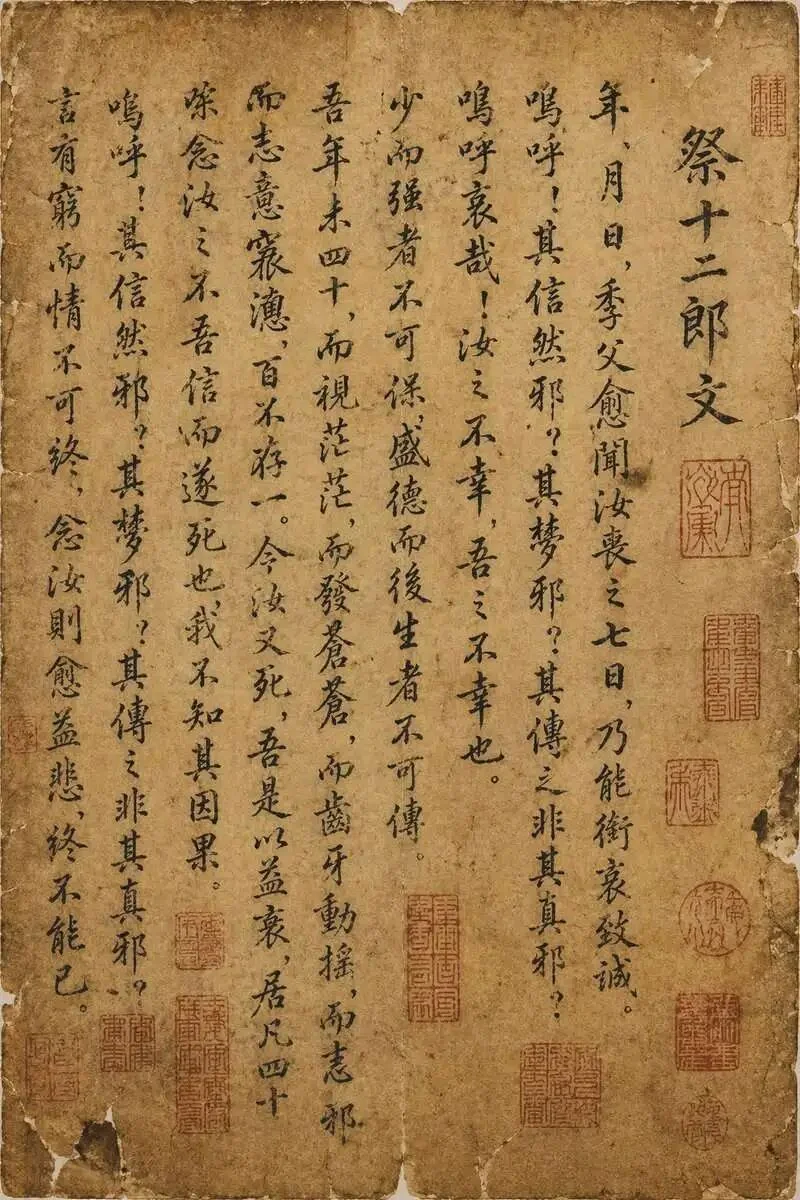 祭十二郎文
年、月日，季父愈聞汝喪之七日，乃能銜哀致誠。
嗚呼！其信然邪？其夢邪？其傳之非其真邪？
嗚呼哀哉！汝之不幸，吾之不幸也。
少而强者不可保，盛德而後生者不可傳。
吾年未四十，而視茫茫，而發蒼蒼，而齒牙動搖，而志邪
而志意襄澺，百不存一。今汝又死，吾是以益衰，居凡四十
念汝之不吾信而遂死也，我不知其因果。
嗚呼！其信然邪？其梦邪？其傳之非其真邪？
言有窮而情不可終，念汝則愈益悲，終不能已。